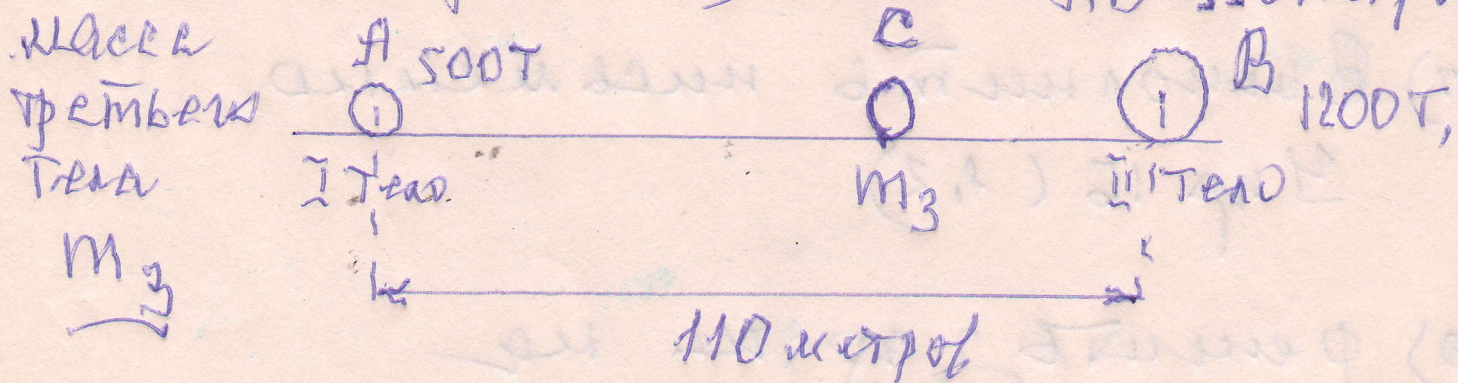 масса
третьего
тела
m3
A 500т
C
B 1200т,
I тело
m3
II тело
110 метров